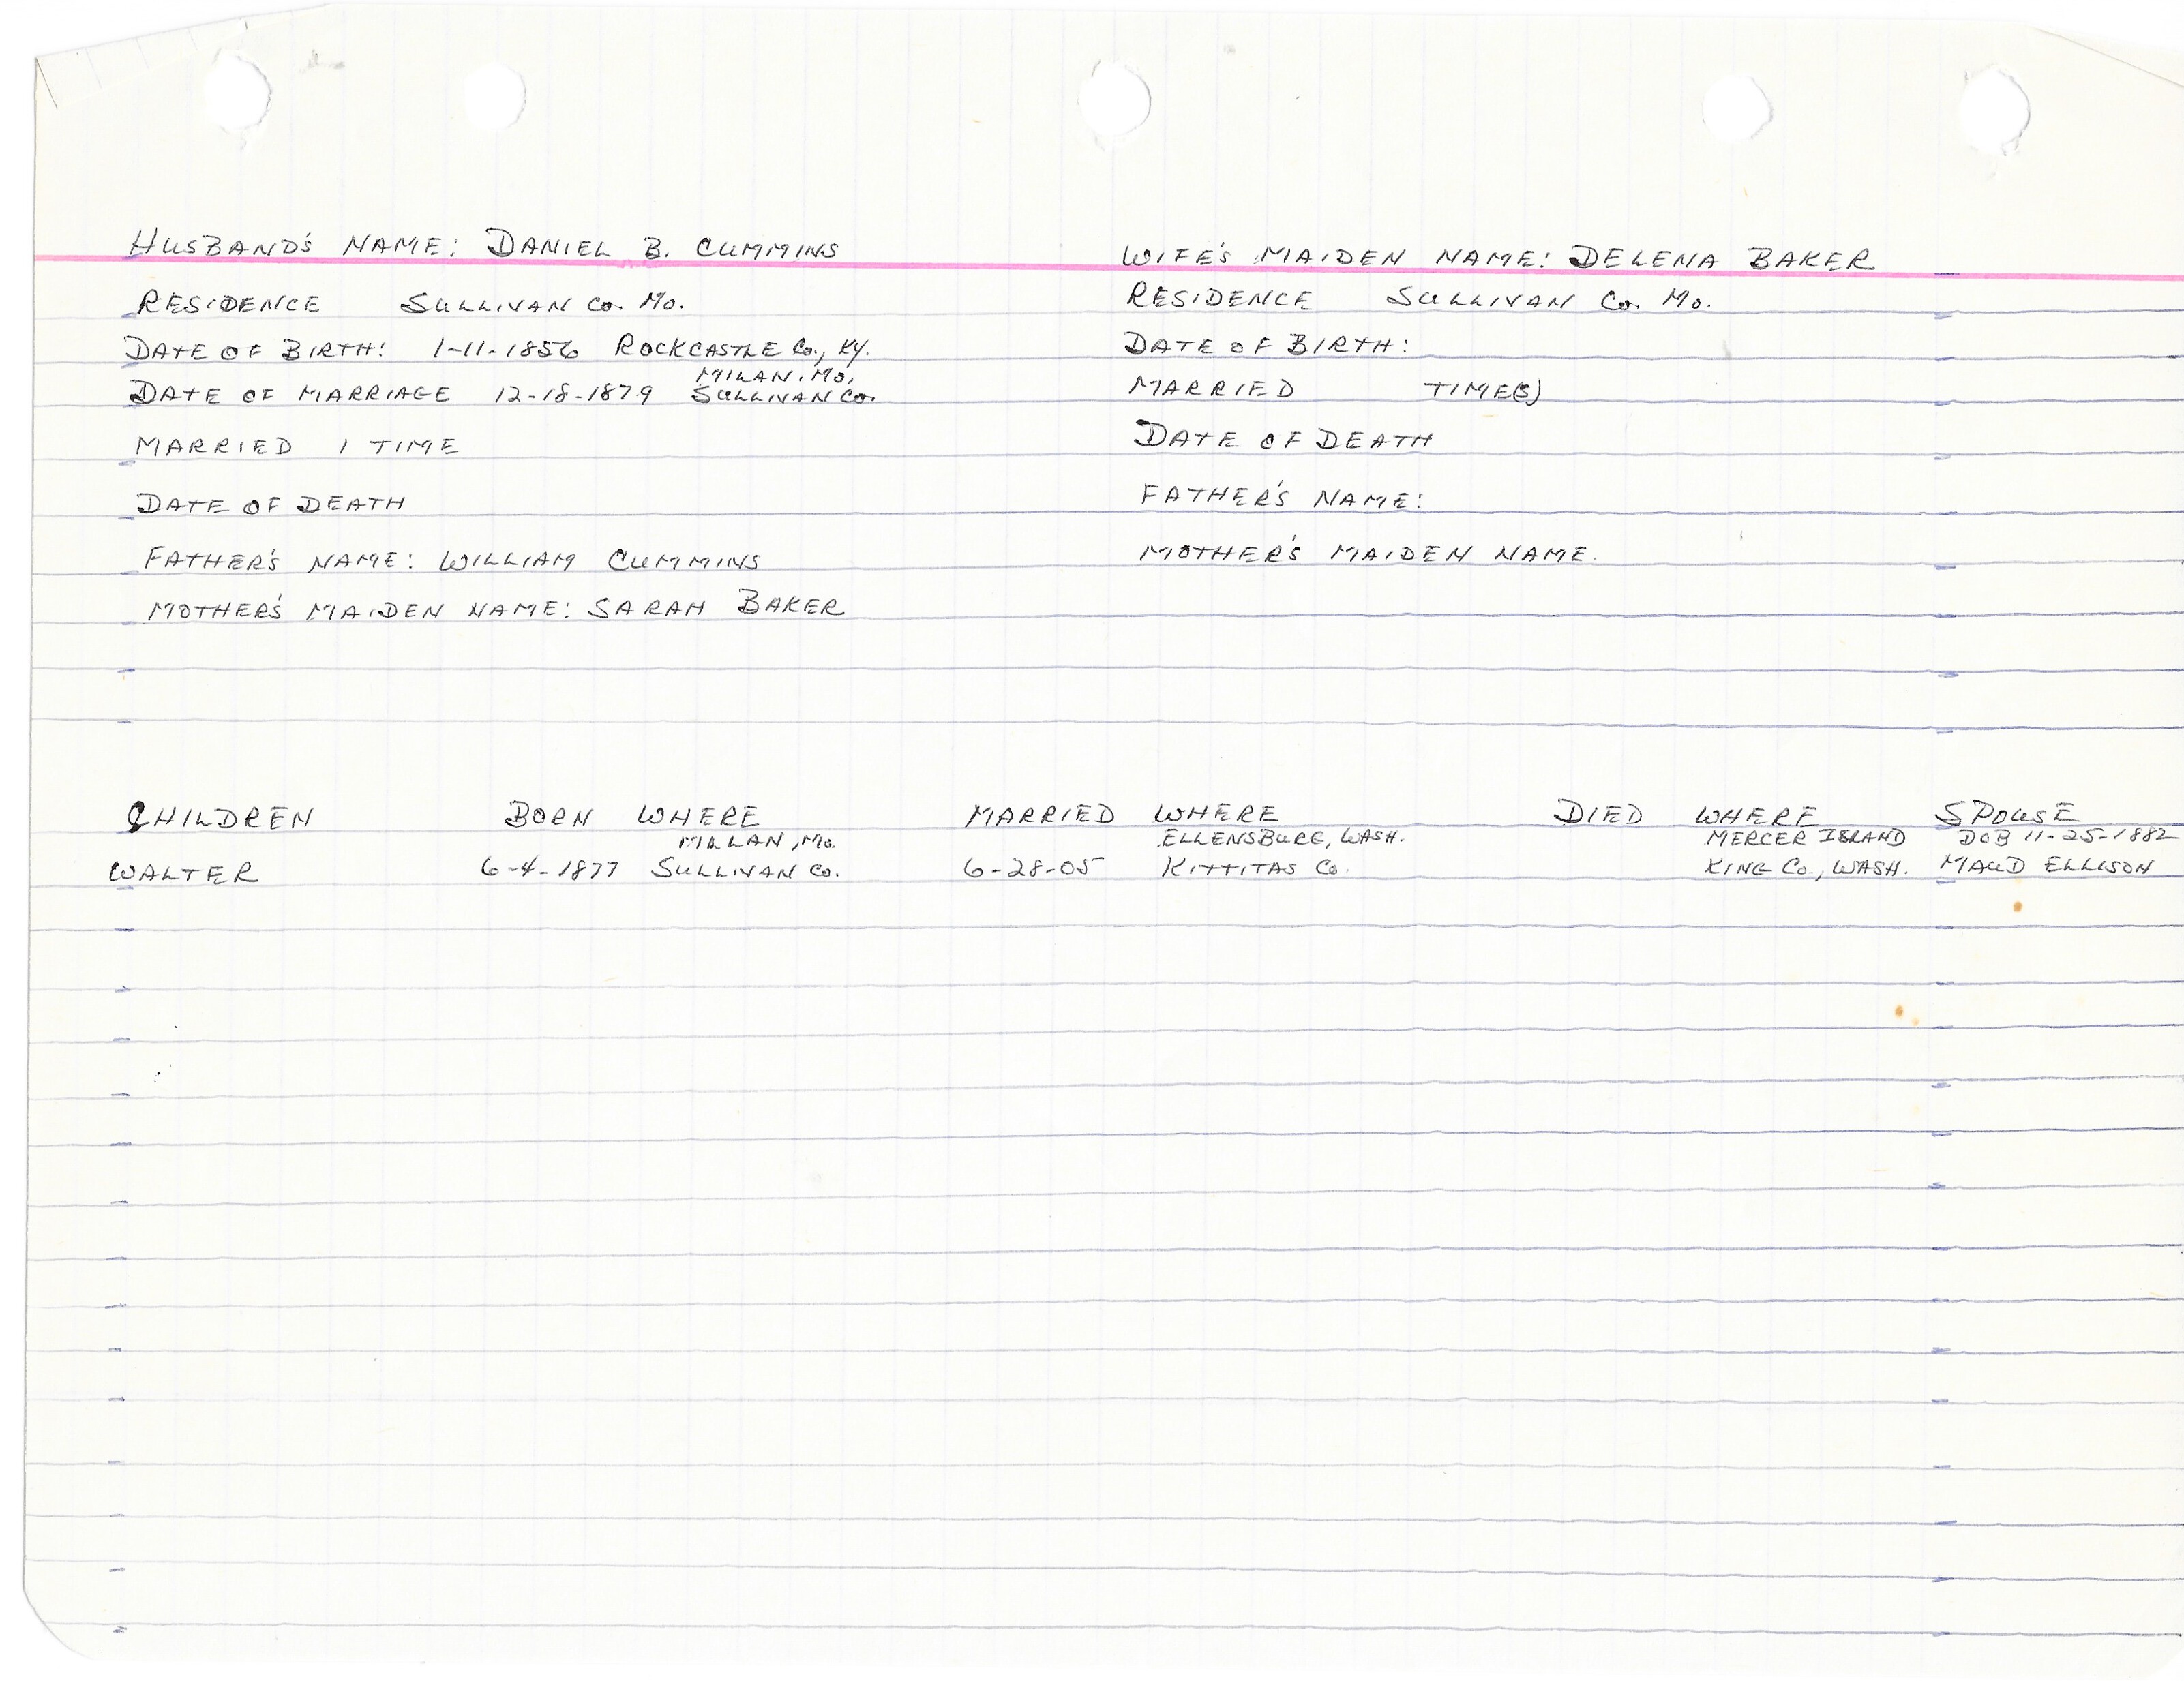 HUSBAND'S NAME: DANIEL B. CUMMINS
RESIDENCE SULLIVAN CO. MO.
DATE OF BIRTH: 1-11-1856 ROCKCASTLE CO., KY.
MILAN, MO.
DATE OF MARRIAGE 12-18-1879 SULLIVAN CO.
MARRIED 1 TIME
DATE OF DEATH
FATHER'S NAME: WILLIAM CUMMINS
MOTHER'S MAIDEN NAME: SARAH BAKER
WIFE'S MAIDEN NAME: DELENA BAKER
RESIDENCE SULLIVAN CO. MO.
DATE OF BIRTH:
MARRIED TIME(S)
DATE OF DEATH
FATHER'S NAME:
MOTHER'S MAIDEN NAME.
CHILDREN BORN WHERE MARRIED WHERE DIED WHERE SPOUSE
MILLAN, MO. ELLENSBURG, WASH. MERCER ISLAND DOB 11-25-1882
WALTER 6-4-1877 SULLIVAN CO. 6-28-05 KITTITAS CO. KING CO., WASH. MAUD ELLISON